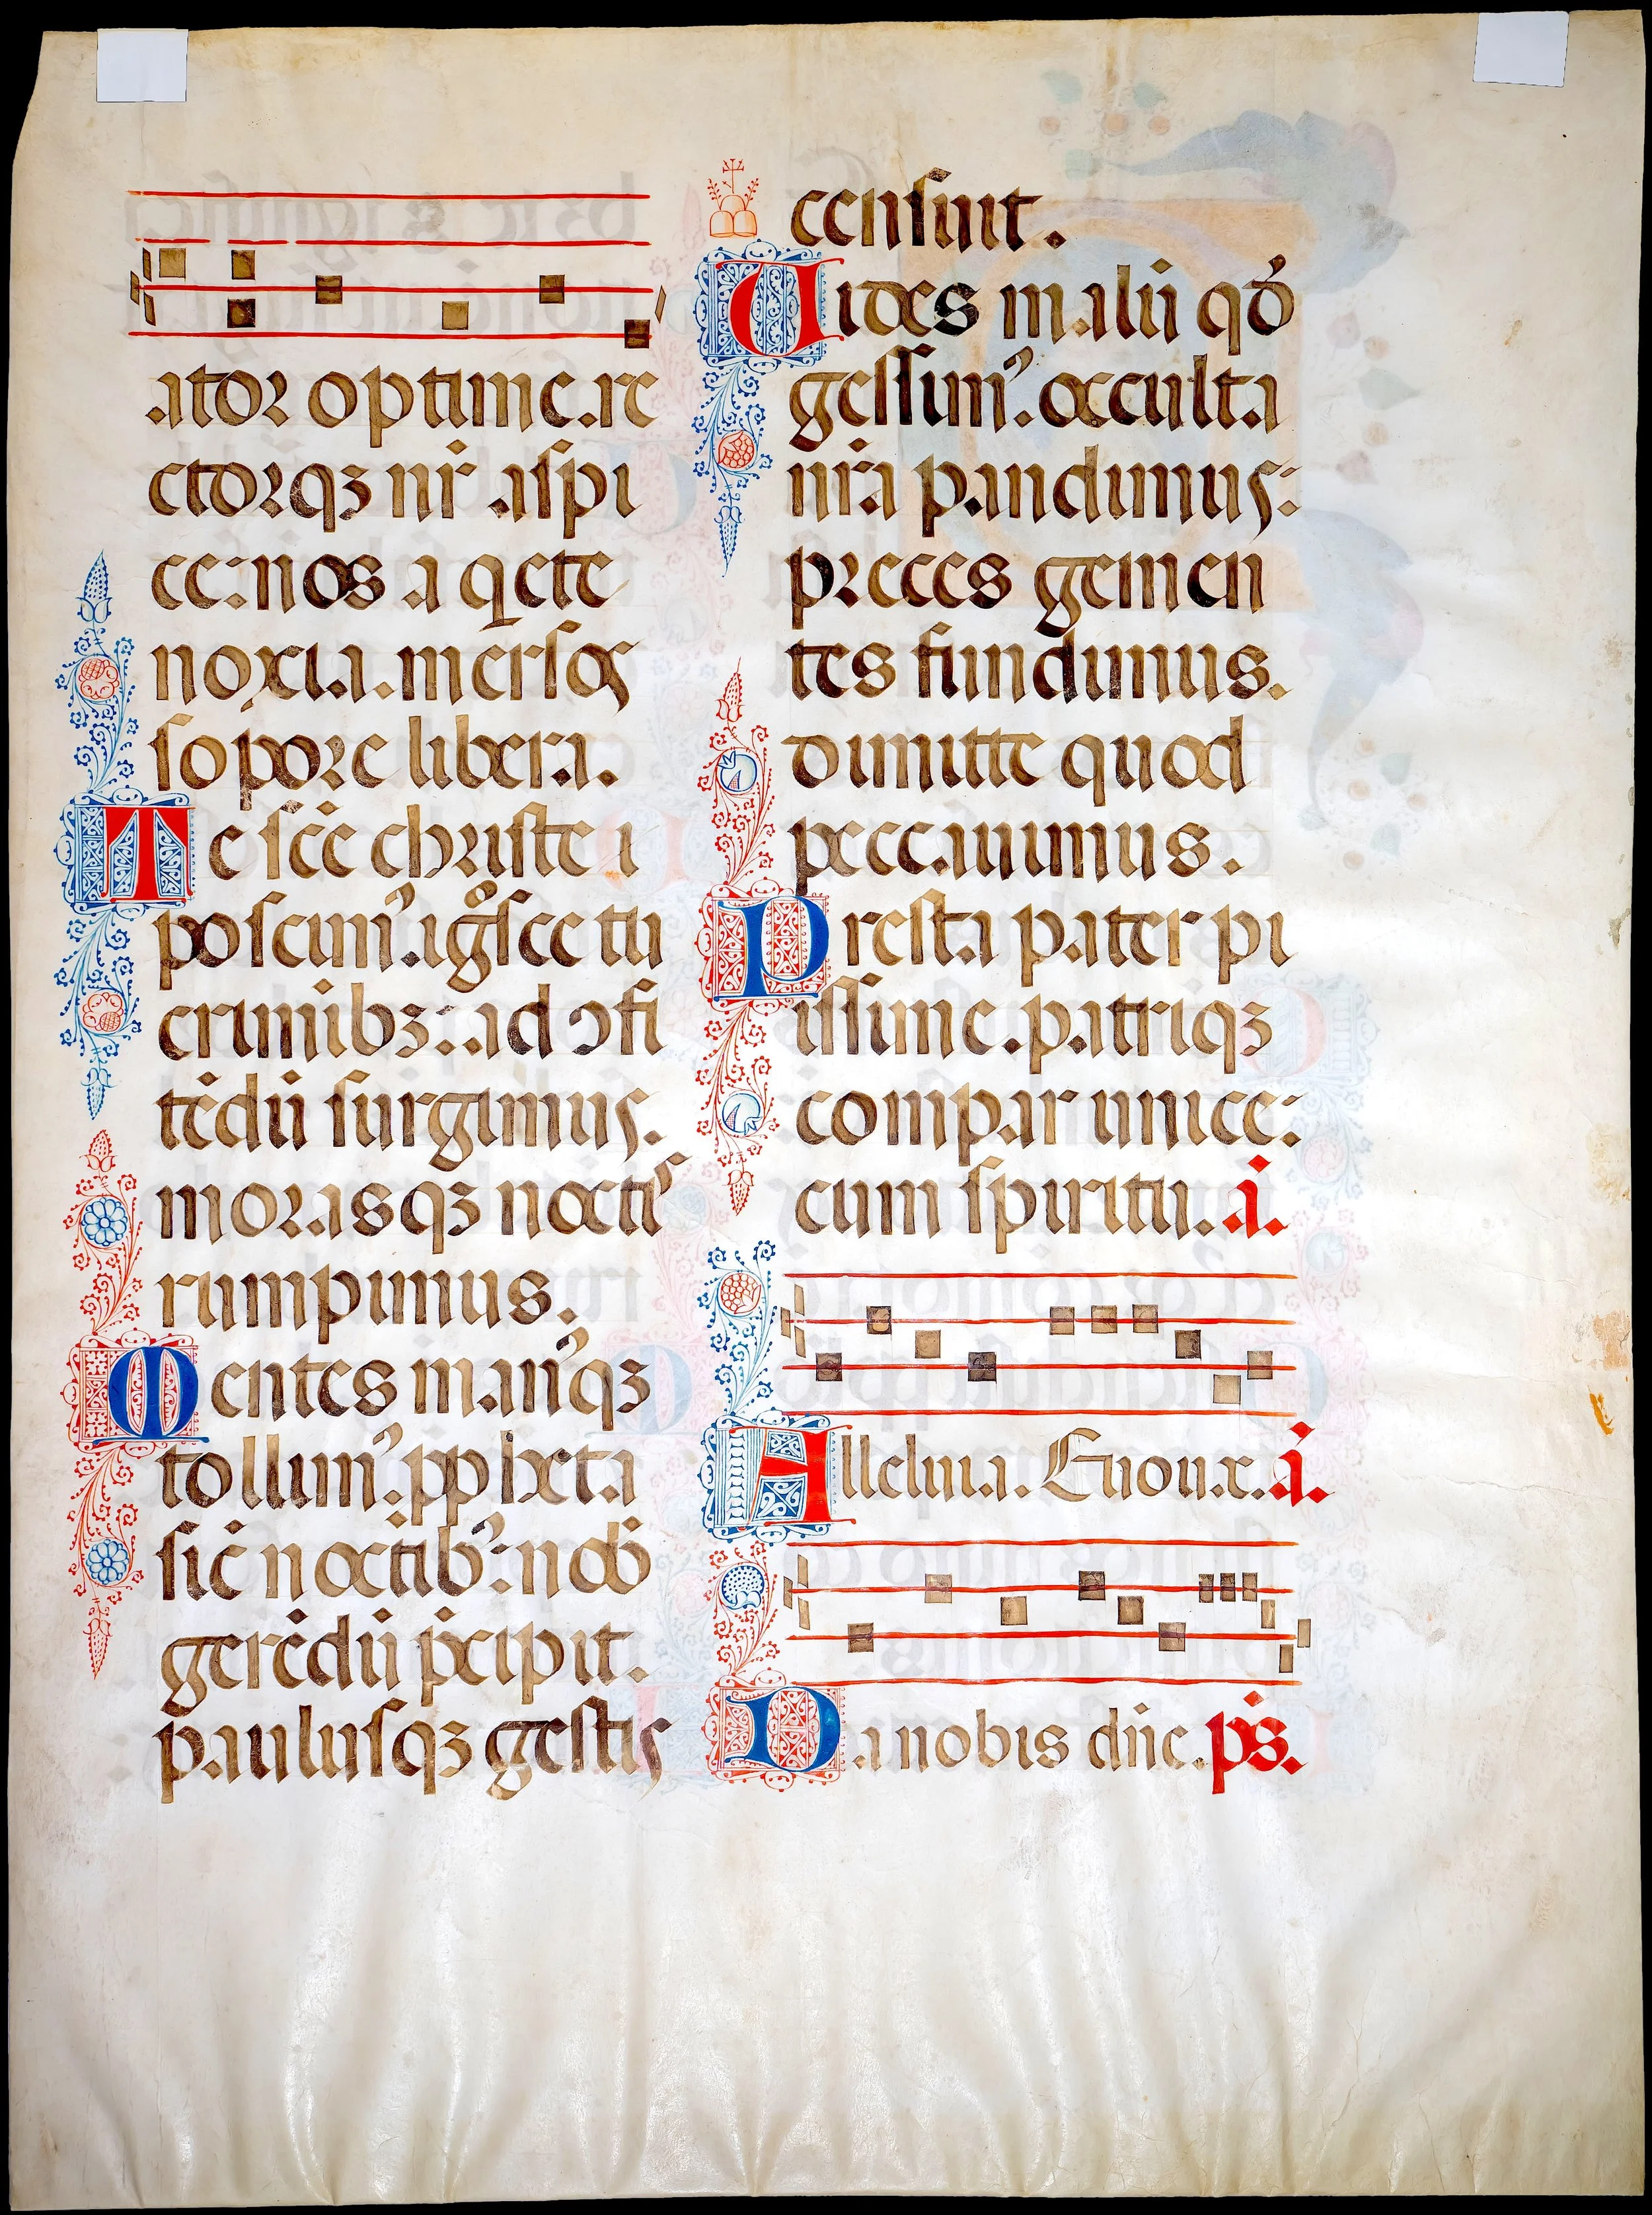 ator optime.re
ctorqꝫ nr̄ aspi
ce:nos a q̄ete
noxia.mersos
sopore libera.
Te sc̄e christe
poscimꝰ.igͦsce tu
criminibꝫ: ad ↄfi
tēdū surgimus.
morasqꝫ noctiˢ
rumpimus.
Mentes manꝰqꝫ
tollimꝰ.pp̄heta
sic̄ noctibꝰ: nob̄
gerēdū p̄cipit.
paulusqꝫ gestis
censuit.
Uides malū qđ
gessimꝰ.occulta
nr̄a pandimus:
preces gemen
tes fundimus.
dimitte quod
peccauimus.
Presta pater pi
issime.patriqꝫ
compar unice:
cum spiritu. a̅.
Alleluia. Euouae. a̅.
Da nobis dn̄e. p̄s.